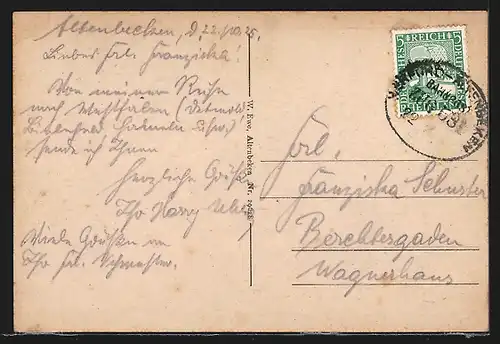 Altenbecken, d 22./10.25.
Liebes Frl. Franziska!
Von meiner Reise
nach Westfalen (Detmold
Hameln
sende ich Ihnen
herzliche Grüße
Ihr Harry
Viele Grüße an
Ihr Frl. Schwester.
W. Ewe, Altenbeken Nr.
DEUTSCHES REICH
5 5
BAHNPOST
ALTENBEKEN
Frl.
Franziska Schuster
Berchtesgaden
Wagnerhaus